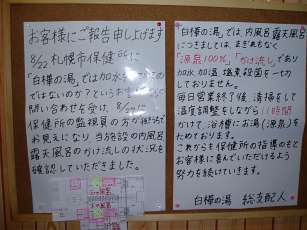 お客様にご報告申し上げます
8/22 札幌市保健所に
「白樺の湯」では加水
ではないのか？という
問い合わせを受け、8/
保健所の監視員の方が
お見えになり当施設の内風呂
露天風呂のかけ流しの状況を
確認していただきました。
「白樺の湯」では、内風呂
露天風呂
につきましては、まぎれもなく
「源泉100%」「かけ流し」であり
加水、加温、塩素殺菌を一切
しておりません。
毎日営業終了後、清掃をして
温度調整をしながら11時間
かけて、浴槽にお湯(源泉)を
ためております。
これからも保健所の指導のもと
お客様に喜んでいただけるよう
努力を続けていきます。
白樺の湯 総支配人